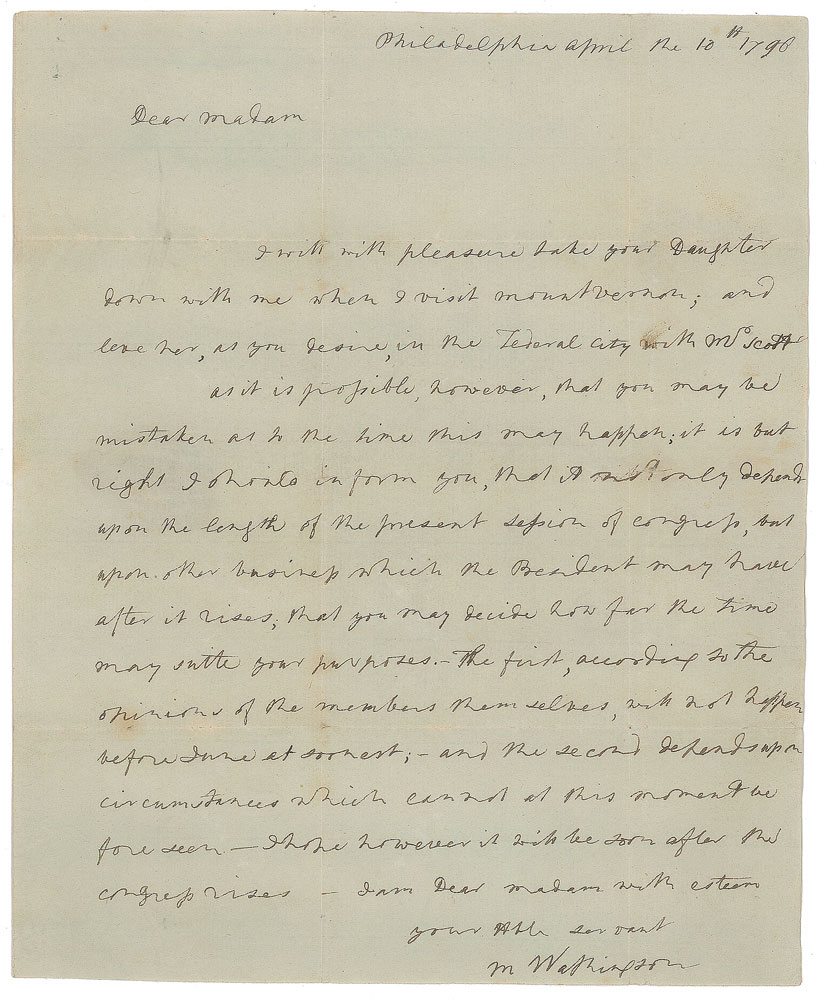 Philadelphia april the 10th 1796
Dear madam
I will with pleasure take your Daughter
down with me when I visit mountvernon; and
leve her, as you desire, in the Federal City with Mrs Scott
as it is possible, however, that you may be
mistaken as to the time this may happen; it is but
right I should inform you, that it not only depends
upon the length of the present session of congress, but
upon other business which the President may have
after it rises; that you may decide how far the time
may sutte your purposes.- The first, according to the
opinions of the members themselves, will not happen
before June at soonest; - and the second depends upon
circumstances which cannot at this moment be
fore seen - I hope however it will be soon after the
congress rises - I am Dear madam with esteem
your Hble servant
M Washington